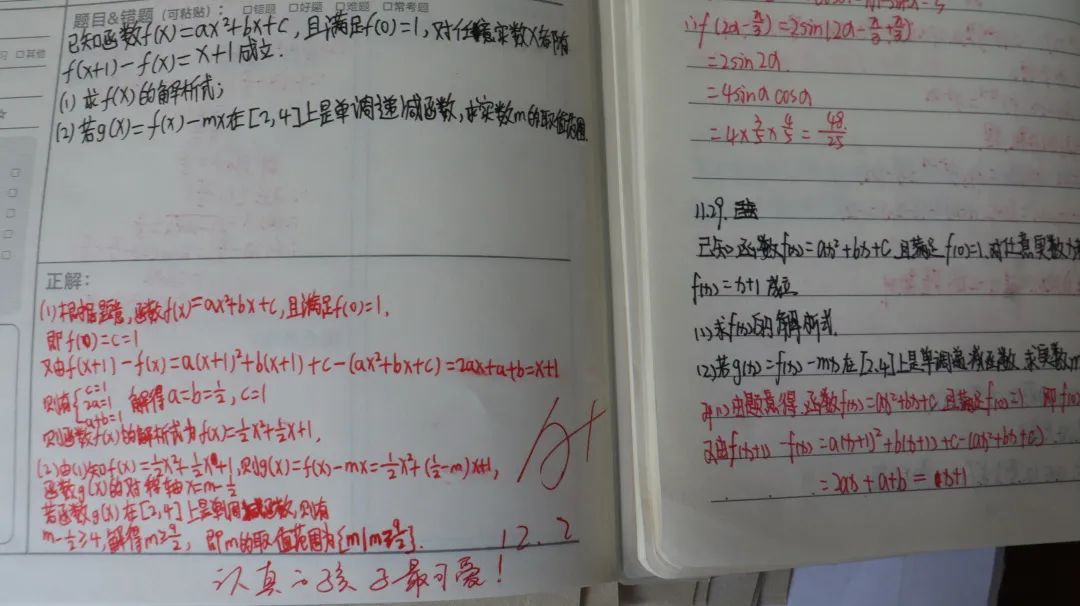 题目&错题（可粘贴）： □错题 □好题 □难题 □常考题
□其他
已知函数f(x)=ax²+bx+c，且满足f(0)=1，对任意实数x都有
f(x+1)-f(x)=x+1成立.
(1) 求f(x)的解析式；
(2) 若g(x)=f(x)-mx在[2,4]上是单调递减函数，求实数m的取值范围.
正解：
(1)根据题意，函数f(x)=ax²+bx+c，且满足f(0)=1，
即f(0)=c=1
又由f(x+1)-f(x)=a(x+1)²+b(x+1)+c-(ax²+bx+c)=2ax+a+b=x+1
则有{c=1 2a=1 a+b=1 解得a=b=½，c=1
则函数f(x)的解析式为f(x)=½x²+½x+1，
(2)由(1)知f(x)=½x²+½x+1，则g(x)=f(x)-mx=½x²+(½-m)x+1，
函数g(x)的对称轴x=m-½
若函数g(x)在[2,4]上是单调减函数，则有
m-½≥4，解得m≥9/2， 即m的取值范围为{m|m≥9/2}.
12.2
认真的孩子最可爱！
∴f(2α-π/3)=2sin(2α-π/3+π/3)
=2sin2α
=4sinαcosα
=4×3/5×4/5=48/25
11.29.
已知函数f(x)=ax²+bx+c，且满足f(0)=1，对任意实数x
f(x)=x+1成立
(1)求f(x)的解析式.
(2)若g(x)=f(x)-mx在[2,4]上是单调递减函数，求实数m
(1)由题意得，函数f(x)=ax²+bx+c，且满足f(0)=1，即f(0)
又由f(x+1)-f(x)=a(x+1)²+b(x+1)+c-(ax²+bx+c)
=2ax+a+b=x+1